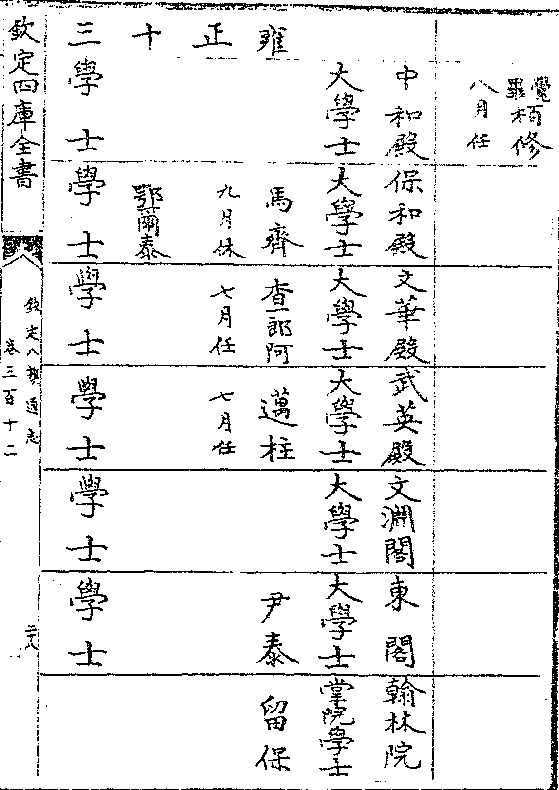 覺羅栢修
八月任
中和殿 保和殿 文華殿 武英殿 文淵閣 東閣 翰林院
大學士 大學士 大學士 大學士 大學士 大學士 掌院學士
雍 馬齊 查郎阿 邁柱 尹泰 留保
正 九月休 七月任 七月任
十 鄂爾泰
三 學士 學士 學士 學士 學士 學士
欽定四庫全書
欽定八旗通志
卷三百十二